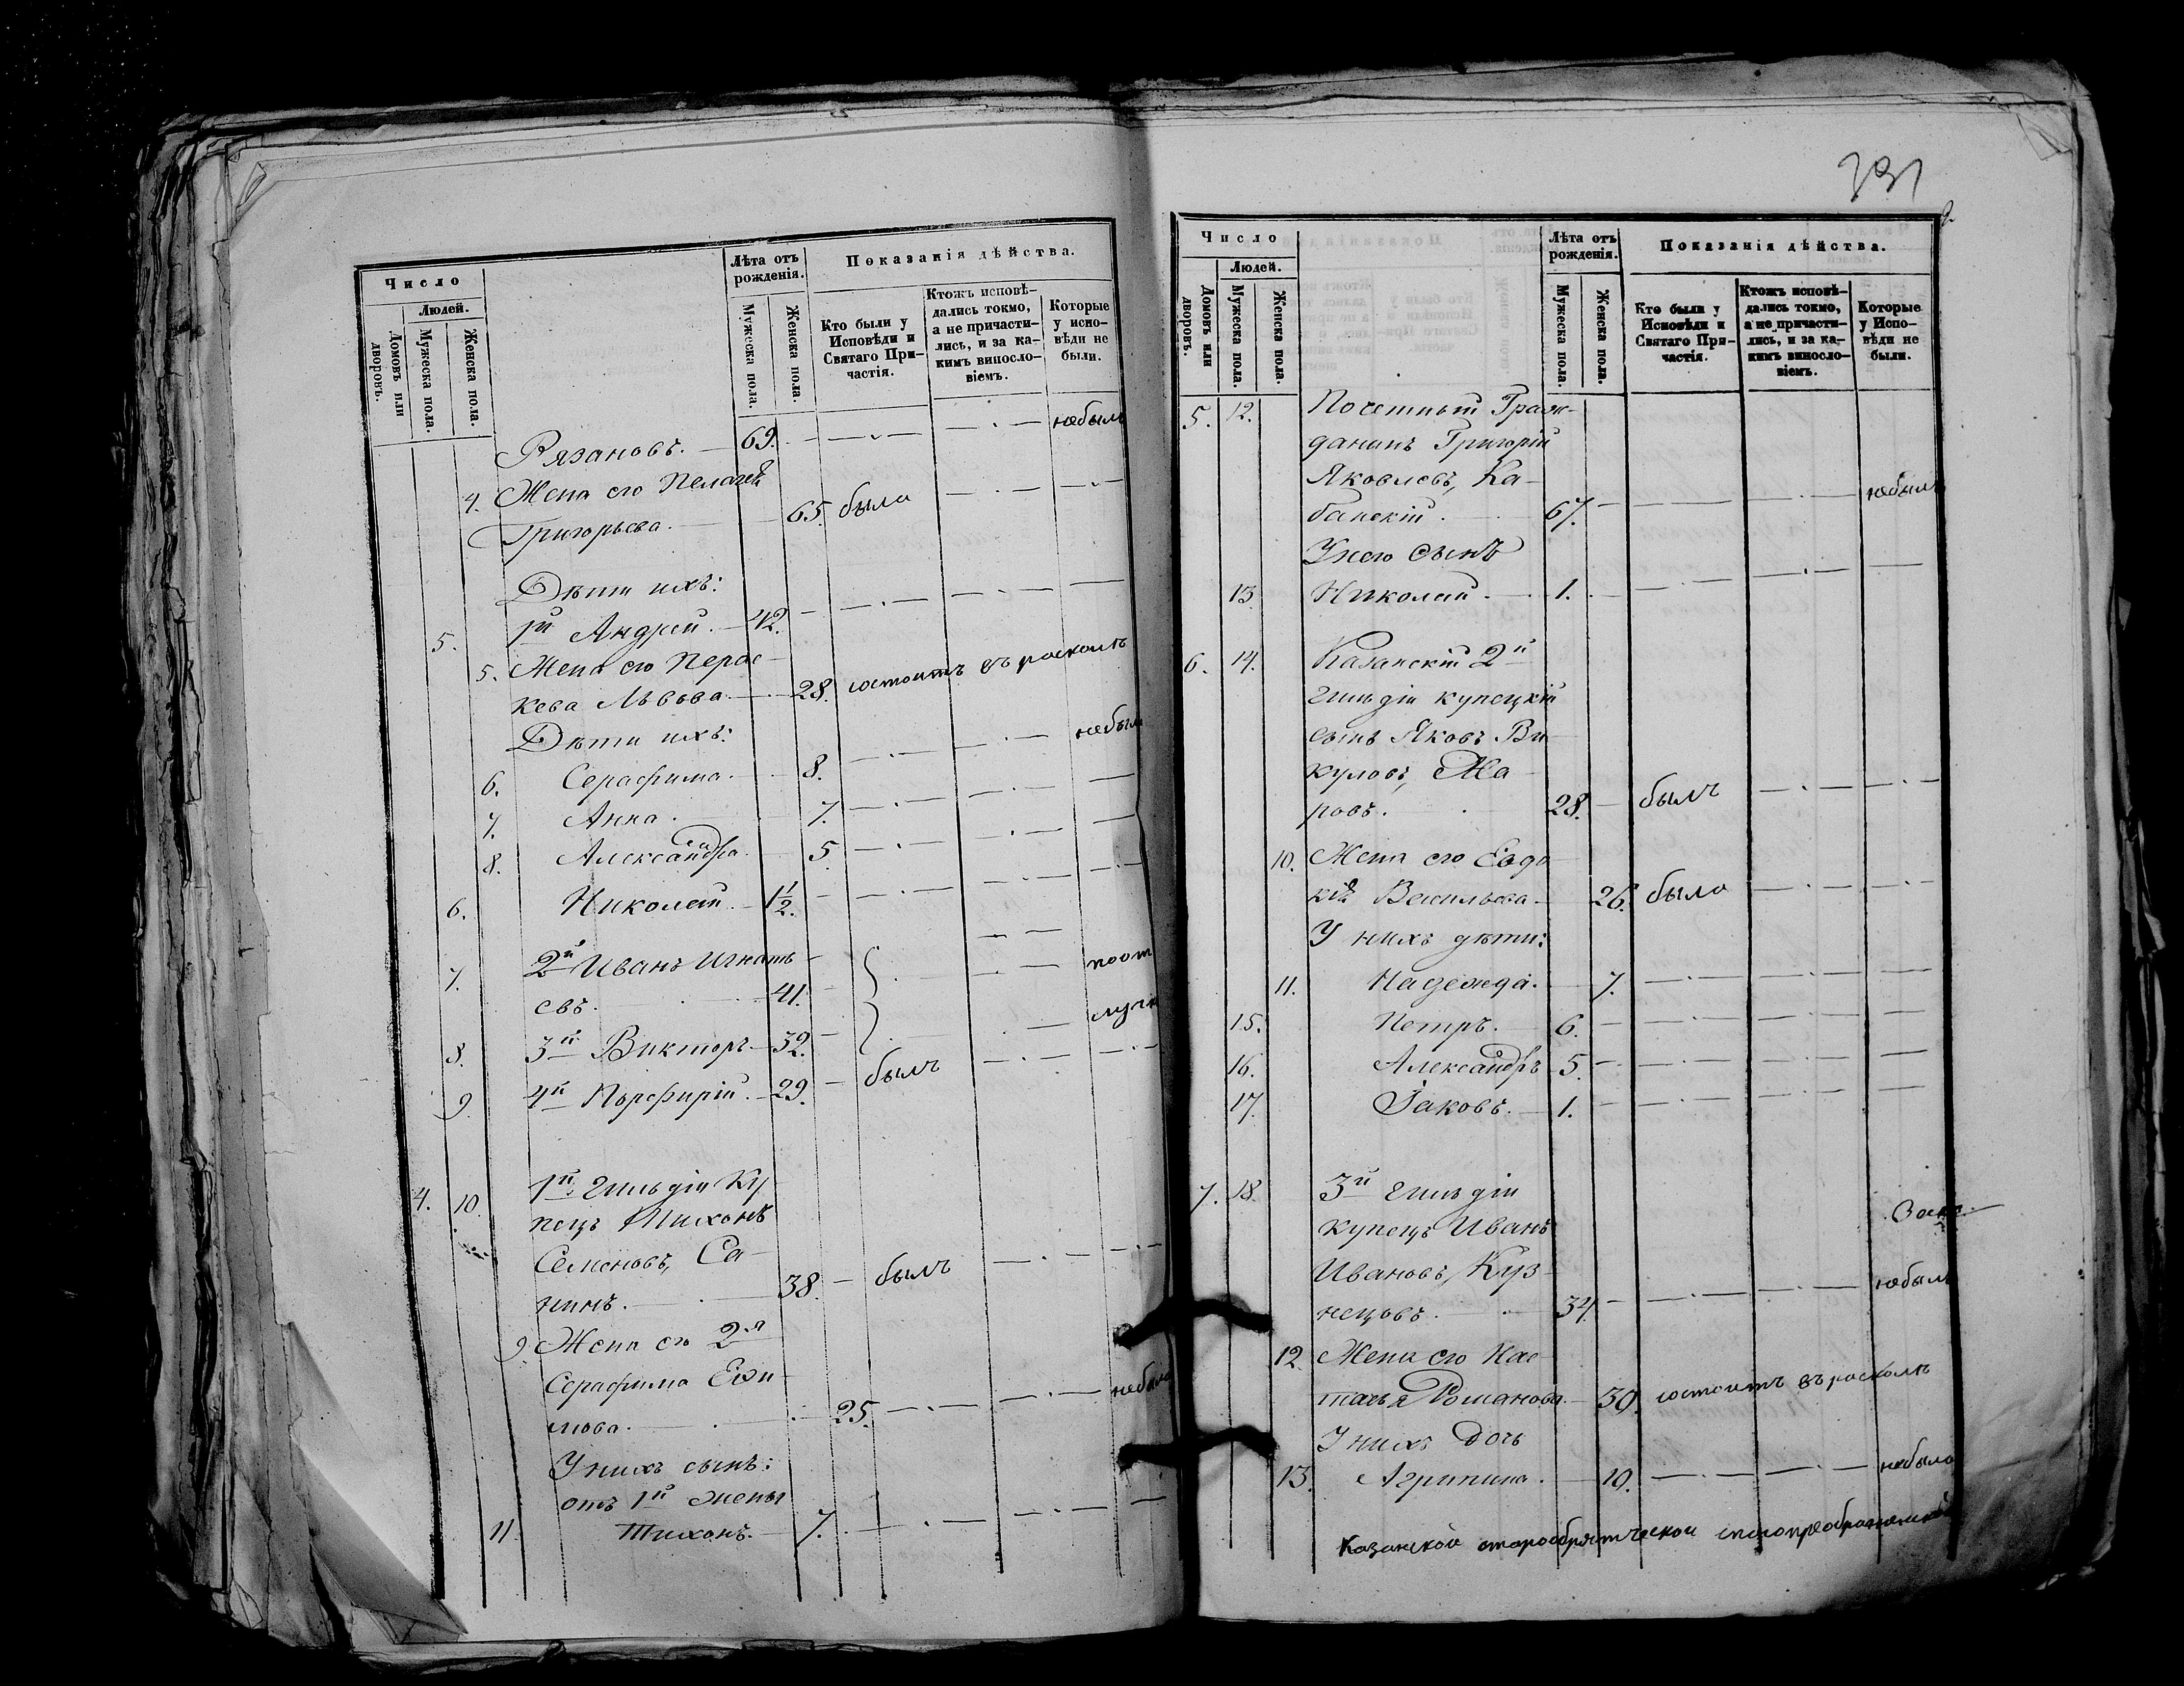 Число
Людей.
Домовъ или дворовъ.
Мужеска пола.
Женска пола.
Лѣта отъ рожденія.
Мужеска пола.
Женска пола.
Показанія дѣйства.
Кто были у Исповѣди и Святаго Причастія.
Ктожъ исповѣдались токмо, а не причастились, и за какимъ винословіемъ.
Которые у исповѣди не были.
Рязановъ. 69. небылъ
4. Жена его Пелагея
Григорьева. 65. была
Дѣти ихъ:
5. 1й Андрей. 42.
5. Жена его Парас-
кева Львова. 28. состоитъ въ расколѣ
Дѣти ихъ:
6. Серафима. 8. небыла
7. Анна. 7.
8. Александра. 5.
6. Николай. 1½.
7. 2й Иванъ Игнать-
евъ. 41.
8. 3й Викторъ 32.
9. 4й Порфирій. 29. былъ
4. 10. 1й Гильдіи Ку
пецъ Тихонъ
Семеновъ, Са-
нинъ. 38. былъ
9. Жена его 2я
Серафима Ефи-
мова. 25. небыла
У нихъ сынъ:
отъ 1й жены
11. Тихонъ. 7.
391
Число
Людей.
Домовъ или дворовъ.
Мужеска пола.
Женска пола.
Лѣта отъ рожденія.
Мужеска пола.
Женска пола.
Показанія дѣйства.
Кто были у Исповѣди и Святаго Причастія.
Ктожъ исповѣдались токмо, а не причастились, и за какимъ винословіемъ.
Которые у Исповѣди не были.
5. 12. Почетный Граж-
данинъ Григорій
Яковлевъ, Ка-
банскій. 67. небылъ
У него сынъ
13. Николай. 1.
6. 14. Казанскій 2й
гильдіи купецкій
сынъ Яковъ Ви-
куловъ, Жа-
ровъ. 28. былъ
10. Жена его Евдо
кія Васильева 26. была
У нихъ дѣти:
11. Надежда. 7.
15. Петръ. 6.
16. Александръ 5.
17. Іаковъ. 1.
7. 18. 3й гильдіи
купецъ Иванъ
Ивановъ, Куз-
нецовъ. 34. небылъ
12. Жена его Нас-
тасья Романова 30. состоитъ въ расколѣ
У нихъ дочь
13. Агрипина. 10. небыла
Казанской старообрятческой спасопреображенской